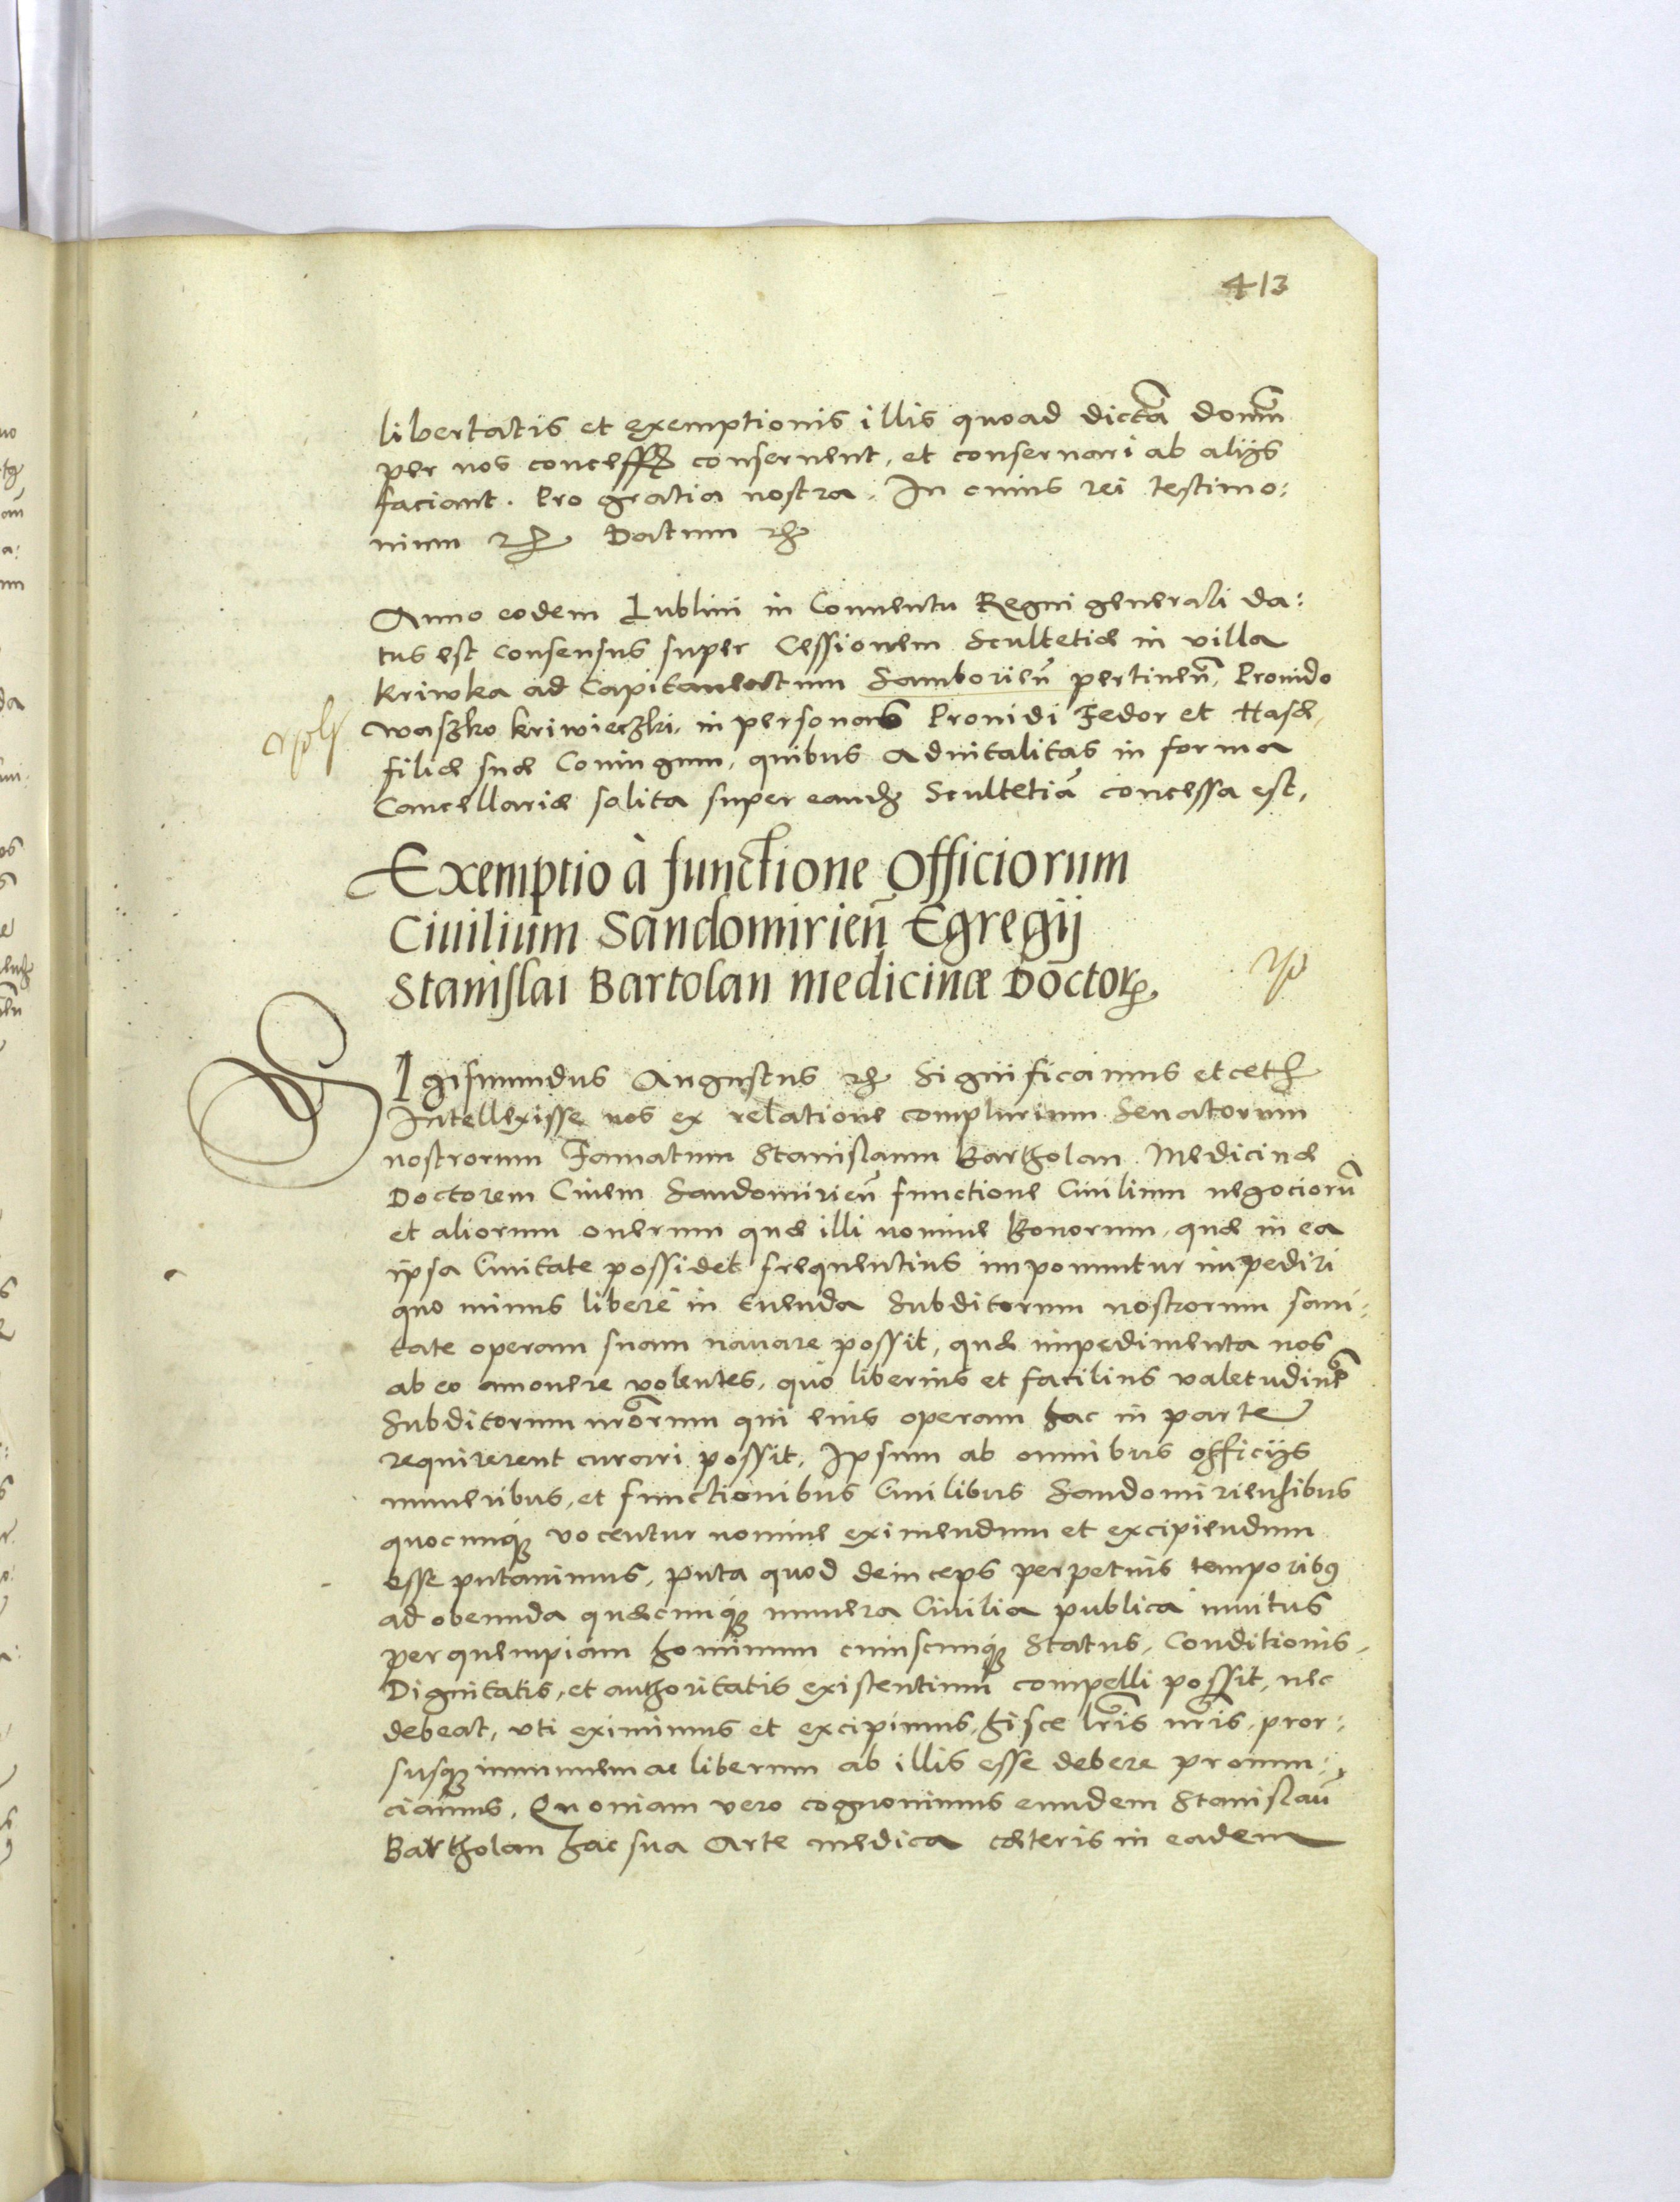 413
libertatis et exemptionis illis quoad dictã domũ
per nos concess consernent, et conseruari ab alijs
faciant. Pro gratia nostra. In cuius rei testimo:
nium Datum
Anno eodem Lublini in Conuentu Regni generali da:
tus est consensus super Cessionem Scultetiæ in villa
Kriwka ad Capitaneatum Samborieñ pertineñ, Prouido
Waszko Kriwieczki, in personas Prouidi Fedor et Hasæ,
filiæ suæ Coniugum, quibus aduitalitas in forma
Cancellariæ solita super eandẽ Scultetiã concessa est,
Exemptio à functione Officiorum
Ciuilium Sandomirieñ Egregij
Stanislai Bartolan medicinæ Doctor
SIgismundus Augustus Significamus etceth
Intellexisse nos ex relatione complurium Senatorum
nostrorum Famatum Stanislaum Bartholan Medicinæ
Doctorem Ciuem Sandomirieñ functione Ciuilium negociorũ
et aliorum onerum quæ illi nomine Bonorum, quæ in ea
ipsa Ciuitate possidet frequentius imponuntur impediri
quo minus liberè in tuenda Subditorum nostrorum sani:
tate operam suam nauare possit, quæ impedimenta nos
ab eo amouere volentes, quò liberius et facilius valetudinẽ
Subditorum nr̃orum qui eius operam hac in parte
requirerent curari possit, Ipsum ab omnibus officijs
muneribus, et functionibus Ciuilibus Sandomiriensibus
quocunq̃ vocentur nomine eximendum et excipiendum
esse putauimus, puta quod deinceps perpetuis temporibꝰ
ad obeunda quæcunq̃ munera Ciuilia publica inuitus
per quempiam hominum cuiuscunq̃ Status, Conditionis,
Dignitatis, et authoritatis existentium compelli possit, nec
debeat, vti eximimus et excipimus, hisce lr̃is nr̃is, pror:
susq̃ immunem ac liberum ab illis esse debere pronun:
ciamus, Quoniam vero cognouimus eundem Stanislaũ
Bartholan hac sua Arte medica cæteris in eadem